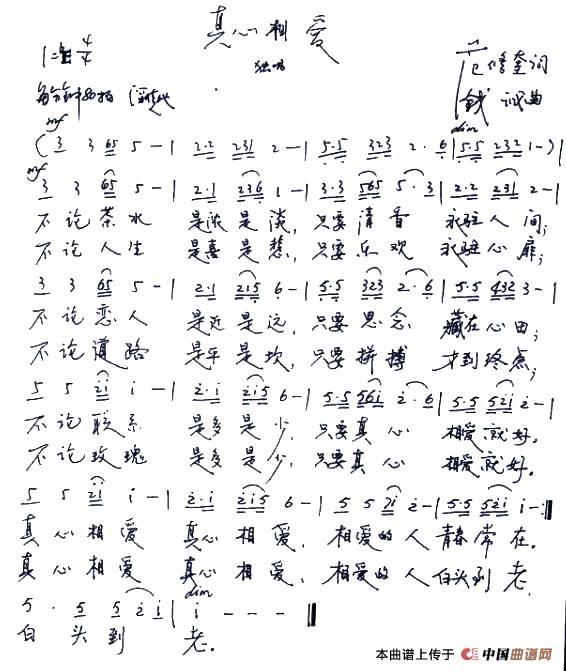 真心相爱
独唱
1=♭E 4/4
每分钟80拍
词
钱诚曲
mf dim
(3 3 65 5 - | 2·2 231 2 - | 5·5 323 2·6 | 5·5 232 1 -) |
mf
3 3 65 5 - | 2·1 236 1 - | 3·3 565 5·3 | 2·2 231 2 - |
不论茶水 是浓是淡,只要清香 永驻人间;
不论人生 是喜是愁,只要乐观 永驻心扉;
3 3 65 5 - | 2·1 215 6 - | 5·5 323 2·6 | 5·5 432 3 - |
不论恋人 是近是远,只要思念 藏在心田;
不论道路 是平是坎,只要拼搏 才到终点;
5 5 2i i - | 2·i 2i5 6 - | 5·5 56i 2·6 | 5·5 52i 2 - |
不论联系 是多是少,只要真心 相爱就好。
不论玫瑰 是多是少,只要真心 相爱就好。
5 5 2i i - | 2·i 2i5 6 - | 5 5 7i 2 - | 5·5 52i i - :||
真心相爱 真心相爱,相爱的人青春常在。
真心相爱 真心相爱,相爱的人白头到老,
dim
5 · 5 5 5 2 i | i - - - ||
白头到 老。
本曲谱上传于 中国曲谱网
www.qupu123.com